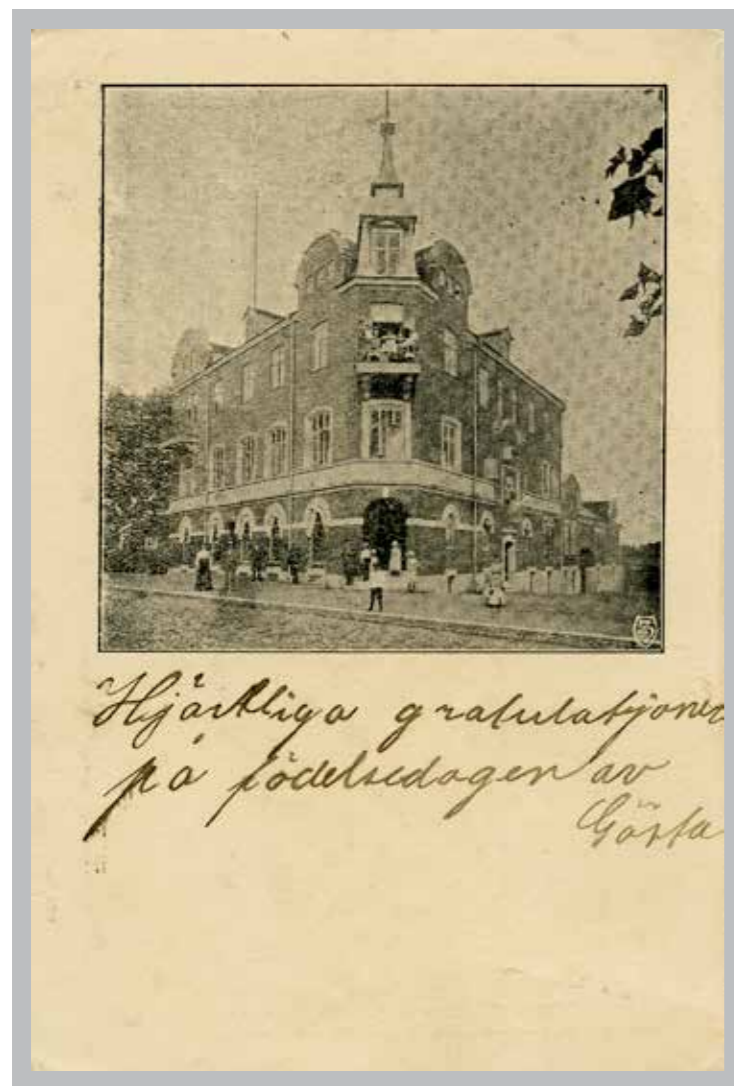 Hjärtliga gratulatjoner
på födelsedagen av
Gösta